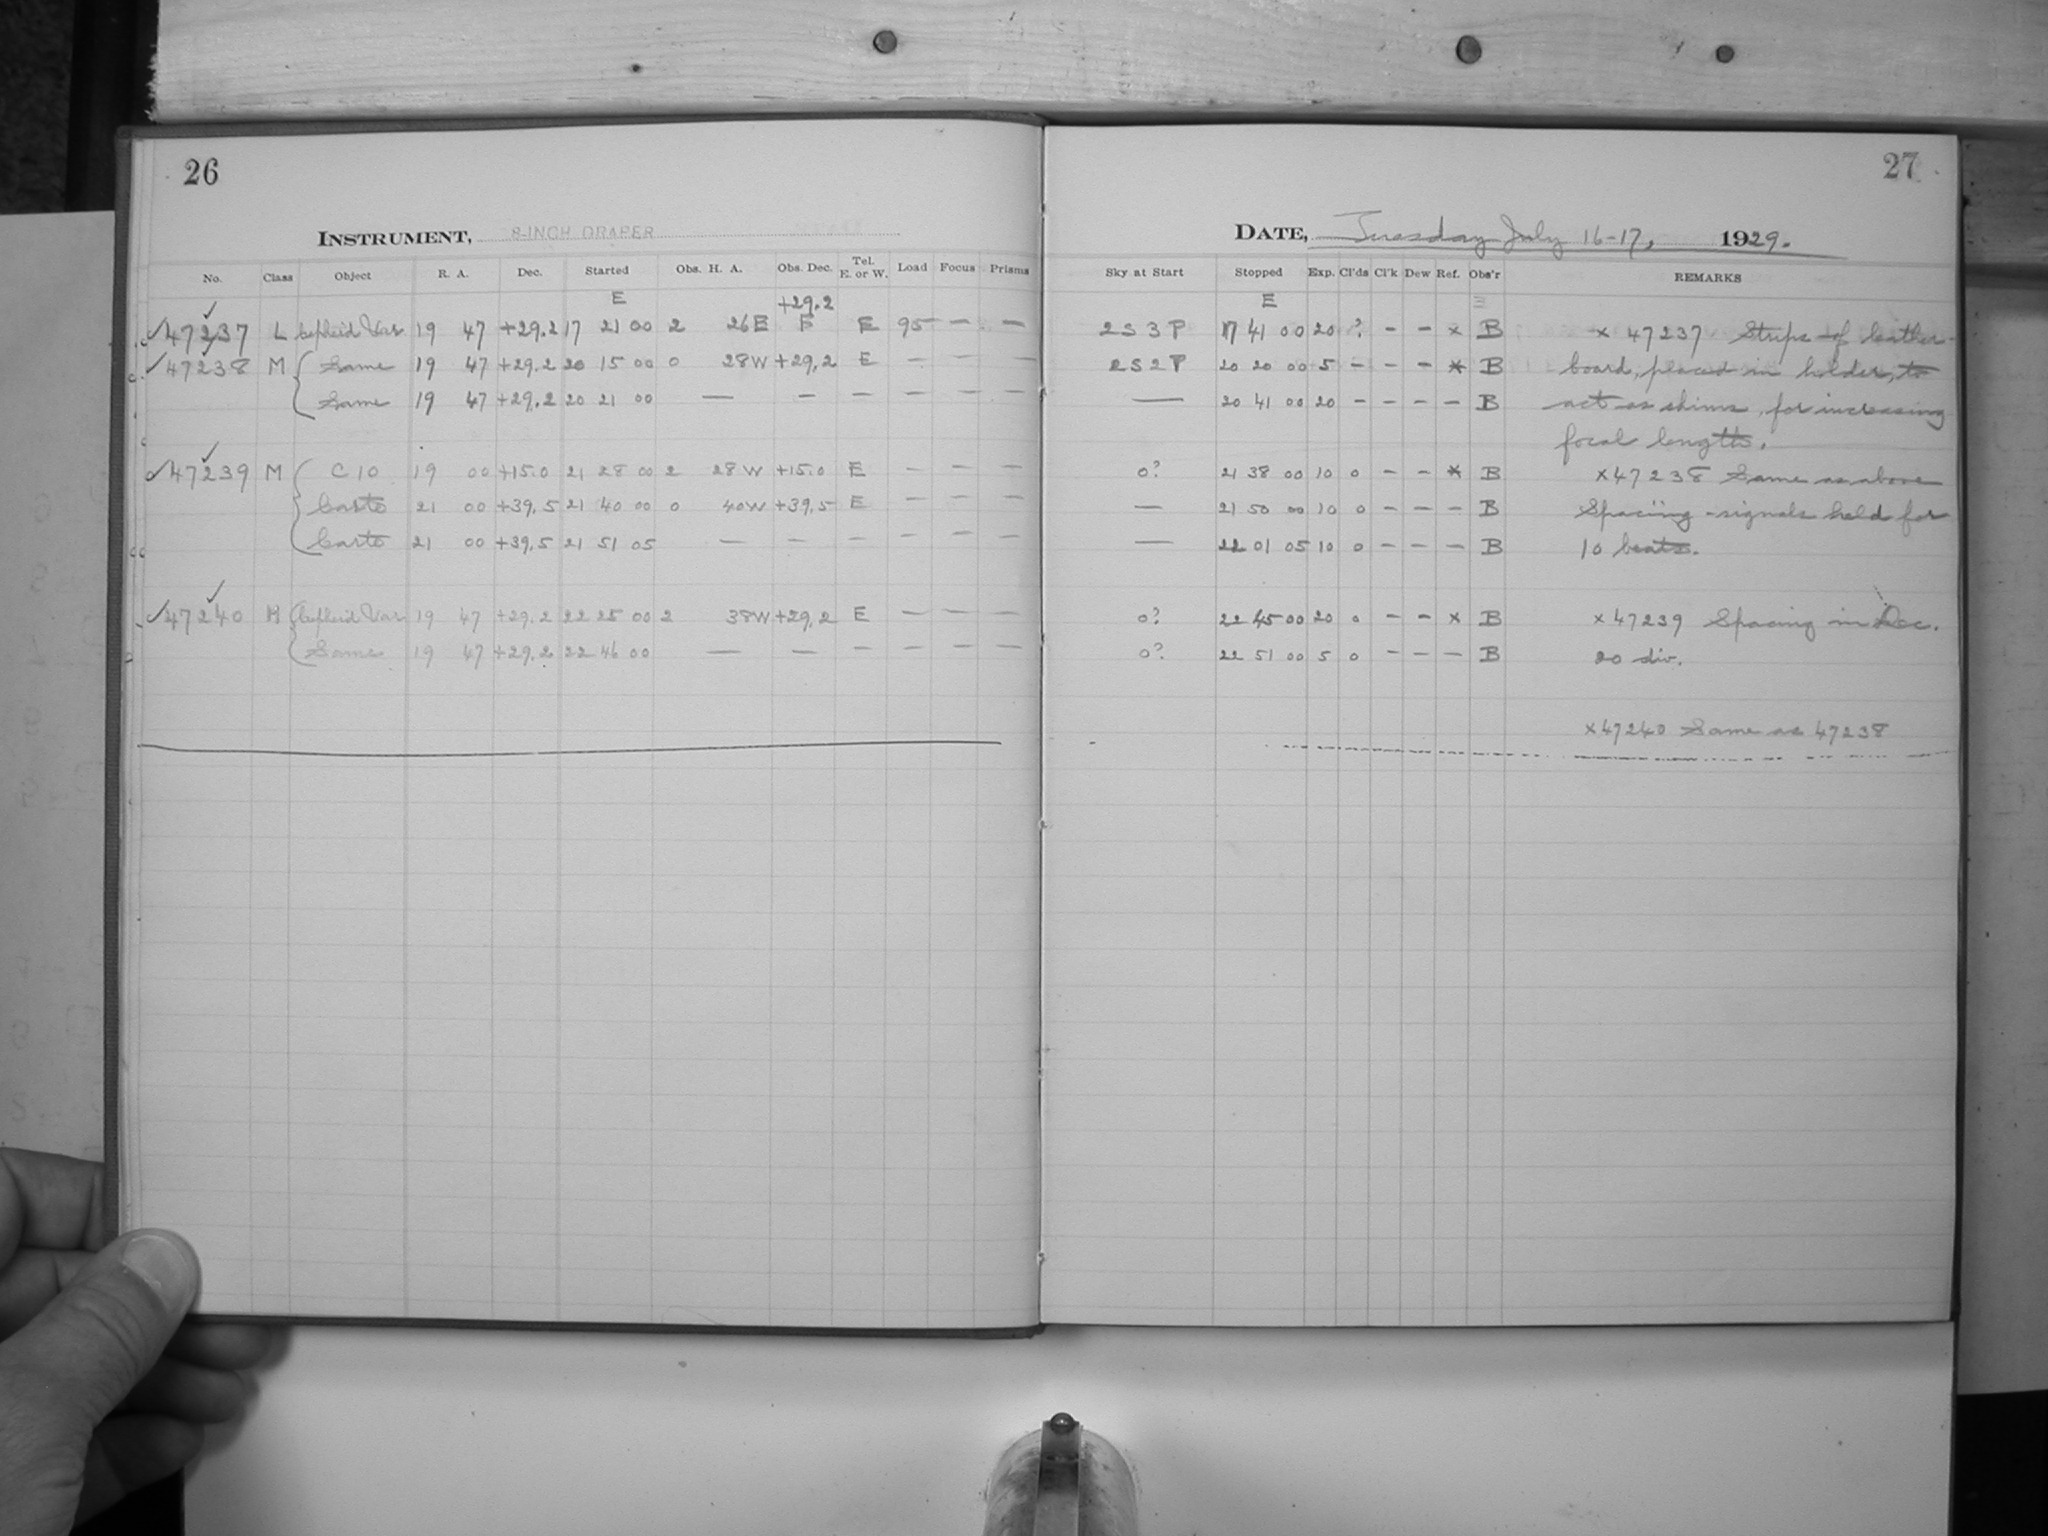 26
INSTRUMENT, 8-INCH DRAPER
No. Class Object R. A. Dec. Started Obs. H. A. Obs. Dec. Tel. E. or W. Load Focus Prisms
E +29.2
✓47237 L Cepheid Var 19 47 +29.2 17 21 00 2 26 E E E 95 — —
✓47238 M { Same 19 47 +29.2 20 15 00 0 28 W +29.2 E — — —
Same 19 47 +29.2 20 21 00 — — — — — —
✓47239 M { C 10 19 00 +15.0 21 28 00 2 28 W +15.0 E — — —
Carte 21 00 +39.5 21 40 00 0 40 W +39.5 E — — —
Carte 21 00 +39.5 21 51 05 — — — — — —
✓47240 M { Cepheid Var 19 47 +29.2 22 25 00 2 38 W +29.2 E — — —
Same 19 47 +29.2 22 46 00 — — — — — —
27
DATE, Tuesday July 16-17, 1929.
Sky at Start Stopped Exp. Cl'ds Cl'k Dew Ref. Obs'r REMARKS
E
2 S 3 P 17 41 00 20 ? – – x B x 47237 Strips of leather-
2 S 2 P 20 20 00 5 – – – * B board, placed in holder, to
— 20 41 00 20 – – – – B act as shims, for increasing
focal length.
0? 21 38 00 10 0 – – * B x 47238 Same as above
— 21 50 00 10 0 – – – B Spacing - signals held for
— 22 01 05 10 0 – – – B 10 beats.
0? 22 45 00 20 0 – – x B x 47239 Spacing in Dec.
0? 22 51 00 5 0 – – – B 20 div.
x 47240 Same as 47238